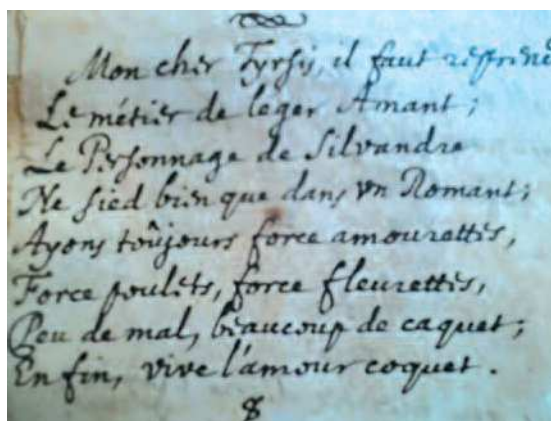 Mon cher Tyrsis, il faut reprend
Le métier de leger Amant;
Le Personnage de Silvandre
Ne sied bien que dans vn Romant;
Ayons toûjours force amourettes,
Force poulets, force fleurettes,
Peu de mal, beaucoup de caquet;
En fin, vive l'amour coquet.
8